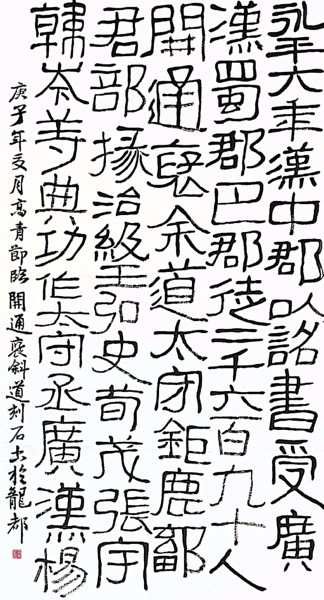 永平六年漢中郡以詔書受廣
漢蜀郡巴郡徒二千六百九十人
開通褒余道太守鉅鹿鄐
君部掾治級王弘史荀茂張宇
韓岑等典功作太守丞廣漢楊
庚子年夏月高青節臨開通褒斜道刻石書於龍都